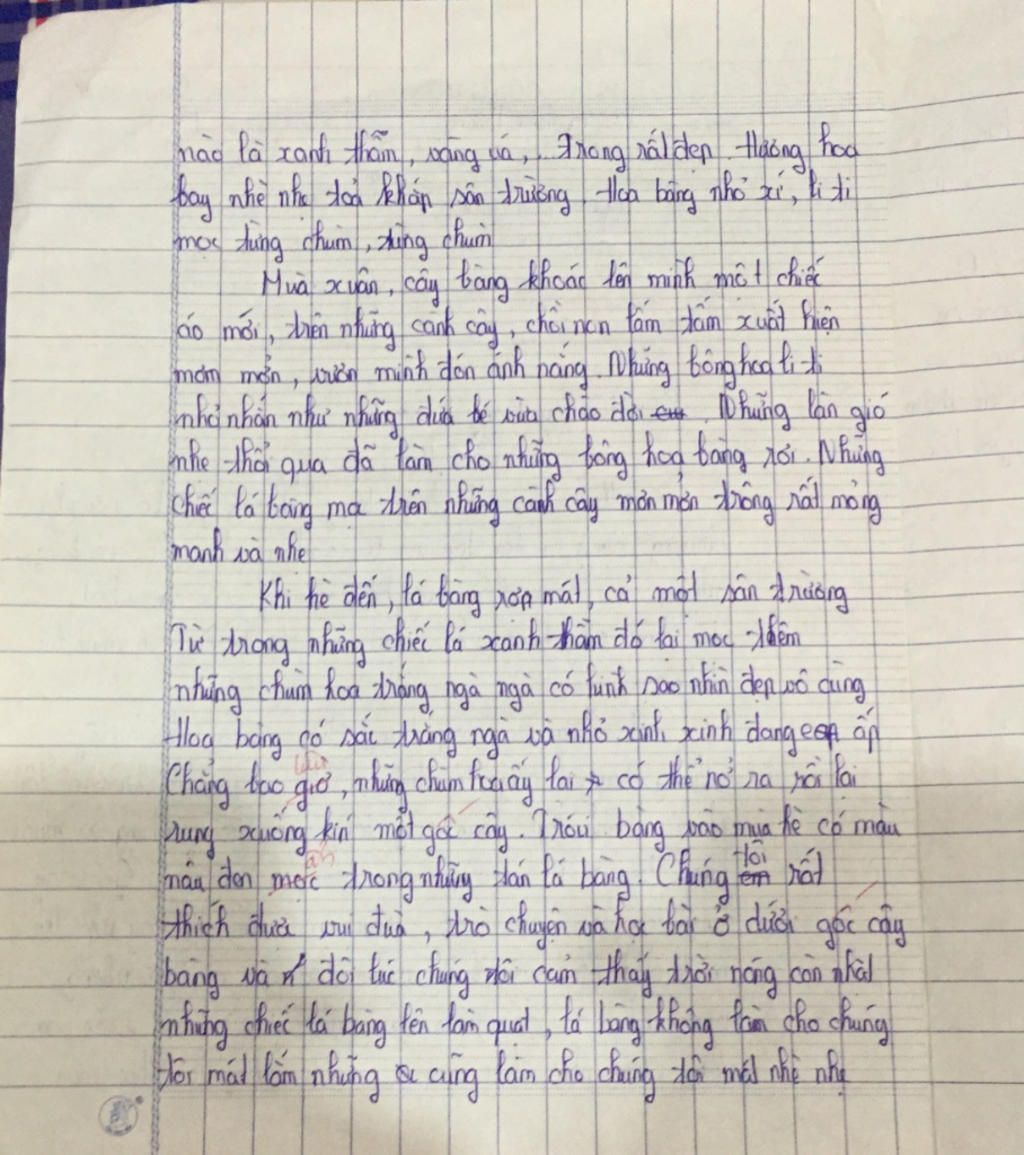 nào là xanh thẫm, vàng úa,... Trong rất đẹp. Hương hoa
bay nhè nhẹ toả khắp sân trường. Hoa bàng nhỏ xí, li ti
mọc từng chùm, từng chùm
Muà xuân, cây bàng khoác lên mình một chiếc
áo mới, trên những cành cây, chồi non lấm tấm xuất hiện
mơm mởn, vươn mình đón ánh nắng. Những bông hoa li ti
nhỏ nhắn như những đứa bé vừa chào đời. Những làn gió
nhẹ thổi qua đã làm cho những bông hoa bàng rơi. Những
chiếc lá bàng mọc trên những cành cây mơn mởn trông rất mỏng
manh và nhẹ
Khi hè đến, lá bàng rợp mát, cả một sân trường
Từ trong những chiếc lá xanh thẫm đó lại mọc thêm
những chùm hoa trắng ngà ngà có hình sao nhìn đẹp vô cùng
Hoa bàng có sắc trắng ngà và nhỏ xinh xinh đang ấp
Chẳng bao giờ, những chùm hoa ấy lại có thể nở ra rồi lại
rụng xuống kín một gốc cây. Trái bàng vào mùa hè có màu
nâu đen mọc trong những tán lá bàng. Chúng tôi rất
thích đùa vui đùa, trò chuyện và học bài ở dưới gốc cây
bàng và đôi lúc chúng tôi cảm thấy trời nóng còn nhặt
những chiếc lá bàng lên làm quạt, lá bàng không làm cho chúng
tôi mát lắm nhưng cũng làm cho chúng tôi mát nhè nhẹ